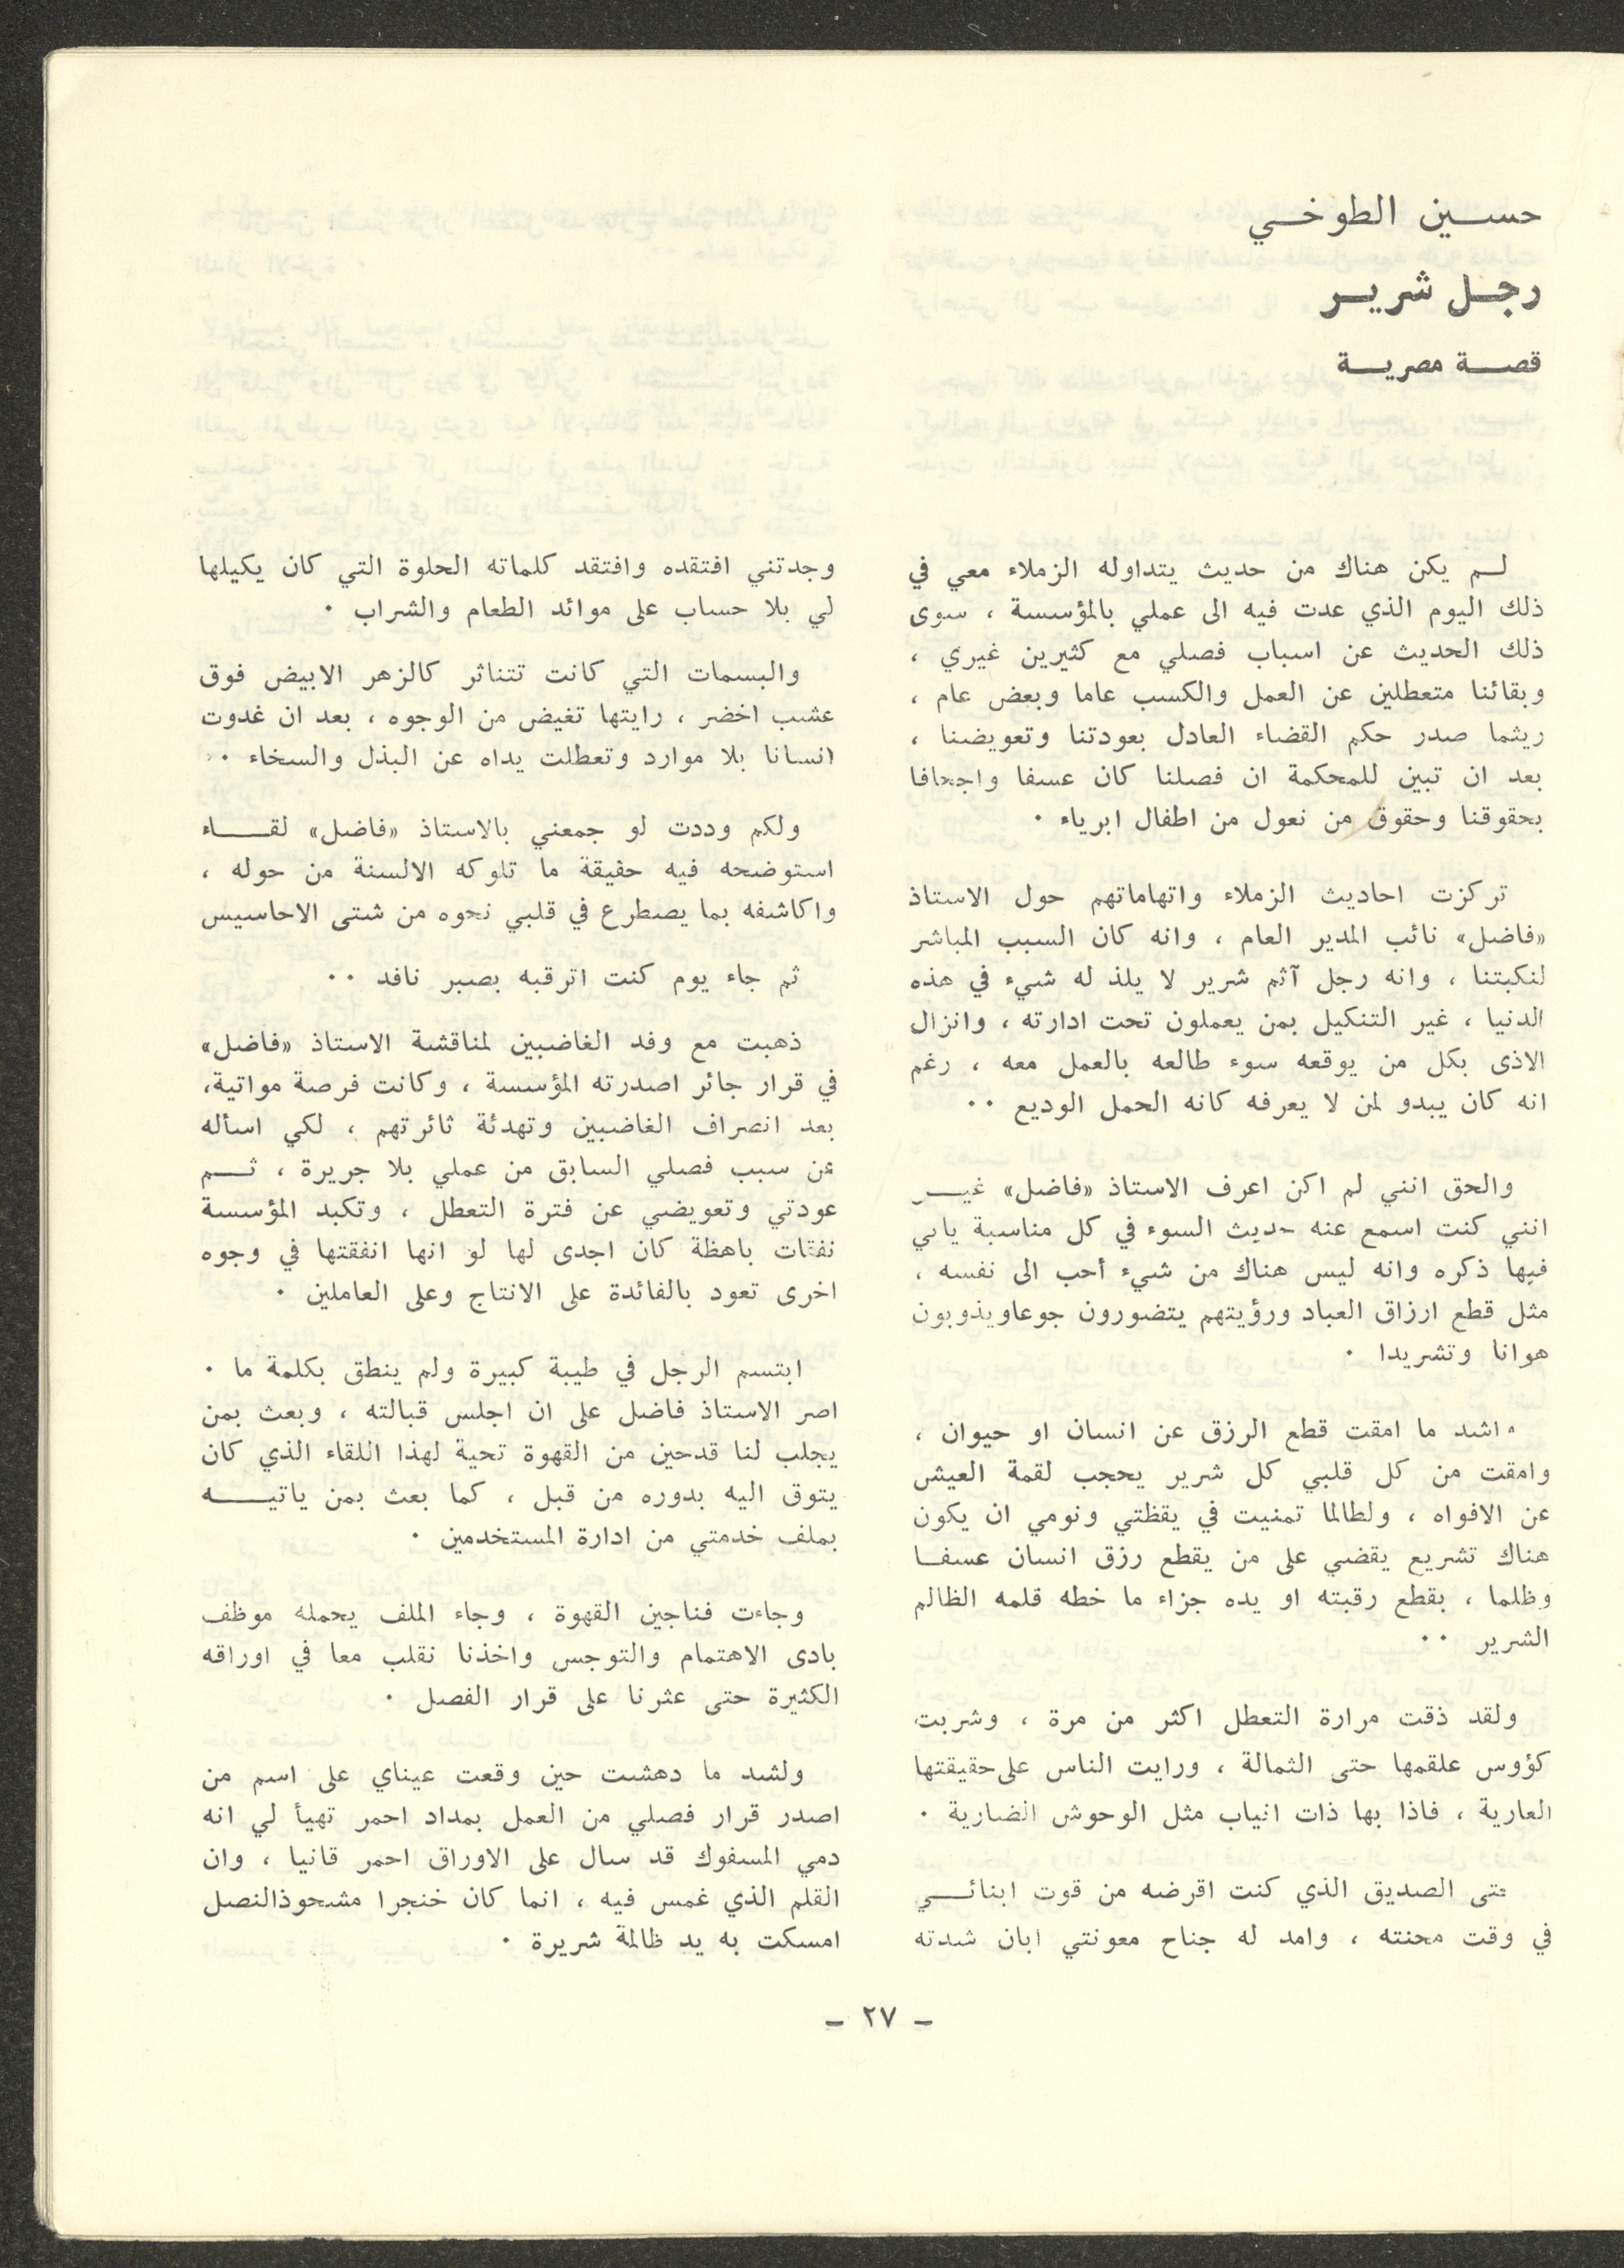 حسين الطوخي
رجل شرير
قصة مصرية
لم يكن هناك من حديث يتداوله الزملاء معي في
ذلك اليوم الذي عدت فيه الى عملي بالمؤسسة ، سوى
ذلك الحديث عن اسباب فصلي مع كثيرين غيري ،
وبقائنا متعطلين عن العمل والكسب عاما وبعض عام ،
ريثما صدر حكم القضاء العادل بعودتنا وتعويضنا ،
بعد ان تبين للمحكمة ان فصلنا كان عسفا واجحافا
بحقوقنا وحقوق من نعول من اطفال ابرياء .
تركزت احاديث الزملاء واتهاماتهم حول الاستاذ
«فاضل» نائب المدير العام ، وانه كان السبب المباشر
لنكبتنا ، وانه رجل آثم شرير لا يلذ له شيء في هذه
الدنيا ، غير التنكيل بمن يعملون تحت ادارته ، وانزال
الاذى بكل من يوقعه سوء طالعه بالعمل معه ، رغم
انه كان يبدو لمن لا يعرفه كانه الحمل الوديع ..
والحق انني لم اكن اعرف الاستاذ «فاضل» غير
انني كنت اسمع عنه حديث السوء في كل مناسبة ياتي
فيها ذكره وانه ليس هناك من شيء أحب الى نفسه ،
مثل قطع ارزاق العباد ورؤيتهم يتضورون جوعاويذوبون
هوانا وتشريدا .
ما اشد ما امقت قطع الرزق عن انسان او حيوان ،
وامقت من كل قلبي كل شرير يحجب لقمة العيش
عن الافواه ، ولطالما تمنيت في يقظتي ونومي ان يكون
هناك تشريع يقضي على من يقطع رزق انسان عسفا
وظلما ، بقطع رقبته او يده جزاء ما خطه قلمه الظالم
الشرير ..
ولقد ذقت مرارة التعطل اكثر من مرة ، وشربت
كؤوس علقمها حتى الثمالة ، ورايت الناس على حقيقتها
العارية ، فاذا بها ذات انياب مثل الوحوش الضارية .
حتى الصديق الذي كنت اقرضه من قوت ابنائي
في وقت محنته ، وامد له جناح معونتي ابان شدته
وجدتني افتقده وافتقد كلماته الحلوة التي كان يكيلها
لي بلا حساب على موائد الطعام والشراب .
والبسمات التي كانت تتناثر كالزهر الابيض فوق
عشب اخضر ، رايتها تغيض من الوجوه ، بعد ان غدوت
انسانا بلا موارد وتعطلت يداه عن البذل والسخاء ..
ولكم وددت لو جمعني بالاستاذ «فاضل» لقاء
استوضحه فيه حقيقة ما تلوكه الالسنة من حوله ،
واكاشفه بما يصطرع في قلبي نحوه من شتى الاحاسيس
ثم جاء يوم كنت اترقبه بصبر نافد ..
ذهبت مع وفد الغاضبين لمناقشة الاستاذ «فاضل»
في قرار جائر اصدرته المؤسسة ، وكانت فرصة مواتية،
بعد انصراف الغاضبين وتهدئة ثائرتهم ، لكي اسأله
عن سبب فصلي السابق من عملي بلا جريرة ، ثم
عودتي وتعويضي عن فترة التعطل ، وتكبد المؤسسة
نفقات باهظة كان اجدى لها لو انها انفقتها في وجوه
اخرى تعود بالفائدة على الانتاج وعلى العاملين .
ابتسم الرجل في طيبة كبيرة ولم ينطق بكلمة ما .
اصر الاستاذ فاضل على ان اجلس قبالته ، وبعث بمن
يجلب لنا قدحين من القهوة تحية لهذا اللقاء الذي كان
يتوق اليه بدوره من قبل ، كما بعث بمن ياتيه
بملف خدمتي من ادارة المستخدمين .
وجاءت فناجين القهوة ، وجاء الملف يحمله موظف
بادى الاهتمام والتوجس واخذنا نقلب معا في اوراقه
الكثيرة حتى عثرنا على قرار الفصل .
ولشد ما دهشت حين وقعت عيناي على اسم من
اصدر قرار فصلي من العمل بمداد احمر تهيأ لي انه
دمي المسفوك قد سال على الاوراق احمر قانيا ، وان
القلم الذي غمس فيه ، انما كان خنجرا مشحوذالنصل
امسكت به يد ظالمة شريرة .
- ٢٧ -